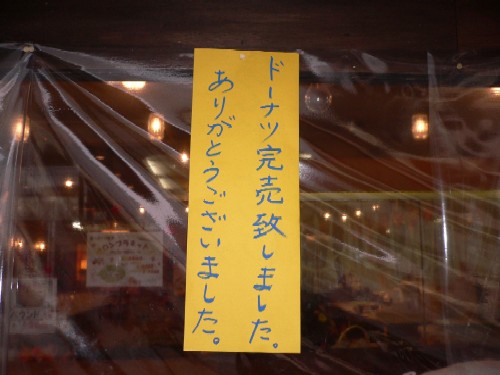 ドーナツ完売致しました。
ありがとうございました。